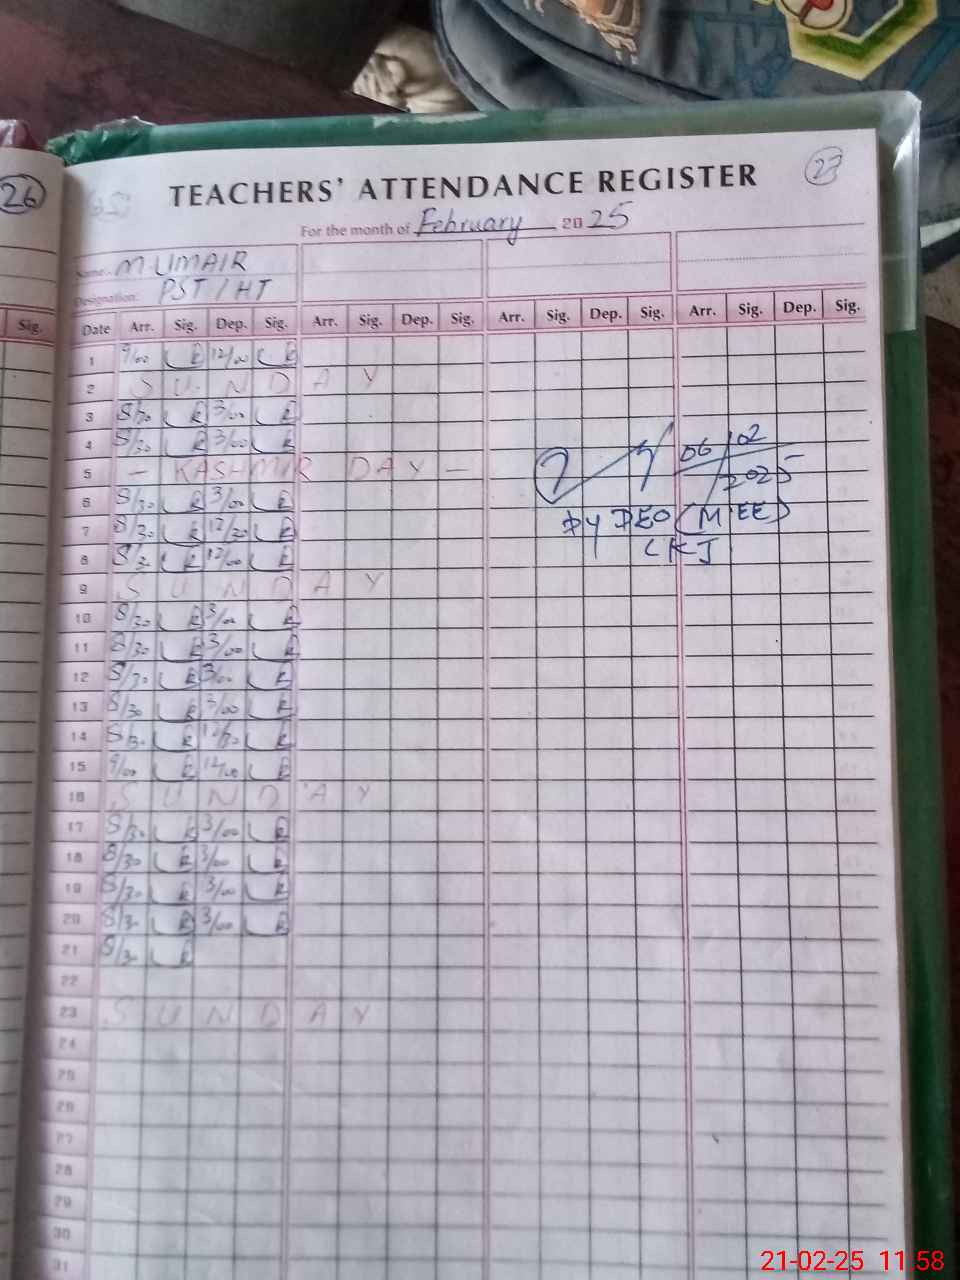 26
Sig.
23
TEACHERS' ATTENDANCE REGISTER
For the month of February 2025
Name: M.UMAIR
Designation: PST/HT
Date Arr. Sig. Dep. Sig. Arr. Sig. Dep. Sig. Arr. Sig. Dep. Sig. Arr. Sig. Dep. Sig.
1 9/00 12/00
2 SUNDAY
3 8/30 3/00
4 8/30 3/00
5 - KASHMIR DAY -
6 8/30 3/00
7 8/30 12/30
8 8/30 12/00
9 SUNDAY
10 8/30 3/00
11 8/30 3/00
12 8/30 3/00
13 8/30 3/00
14 8/30 12/30
15 9/00 12/00
16 SUNDAY
17 8/30 3/00
18 8/30 3/00
19 8/30 3/00
20 8/30 3/00
21 8/30
22
23 SUNDAY
24
25
26
27
28
29
30
31
06/02
2025
Dy DEO (M EE)
LKJ
21-02-25 11:58